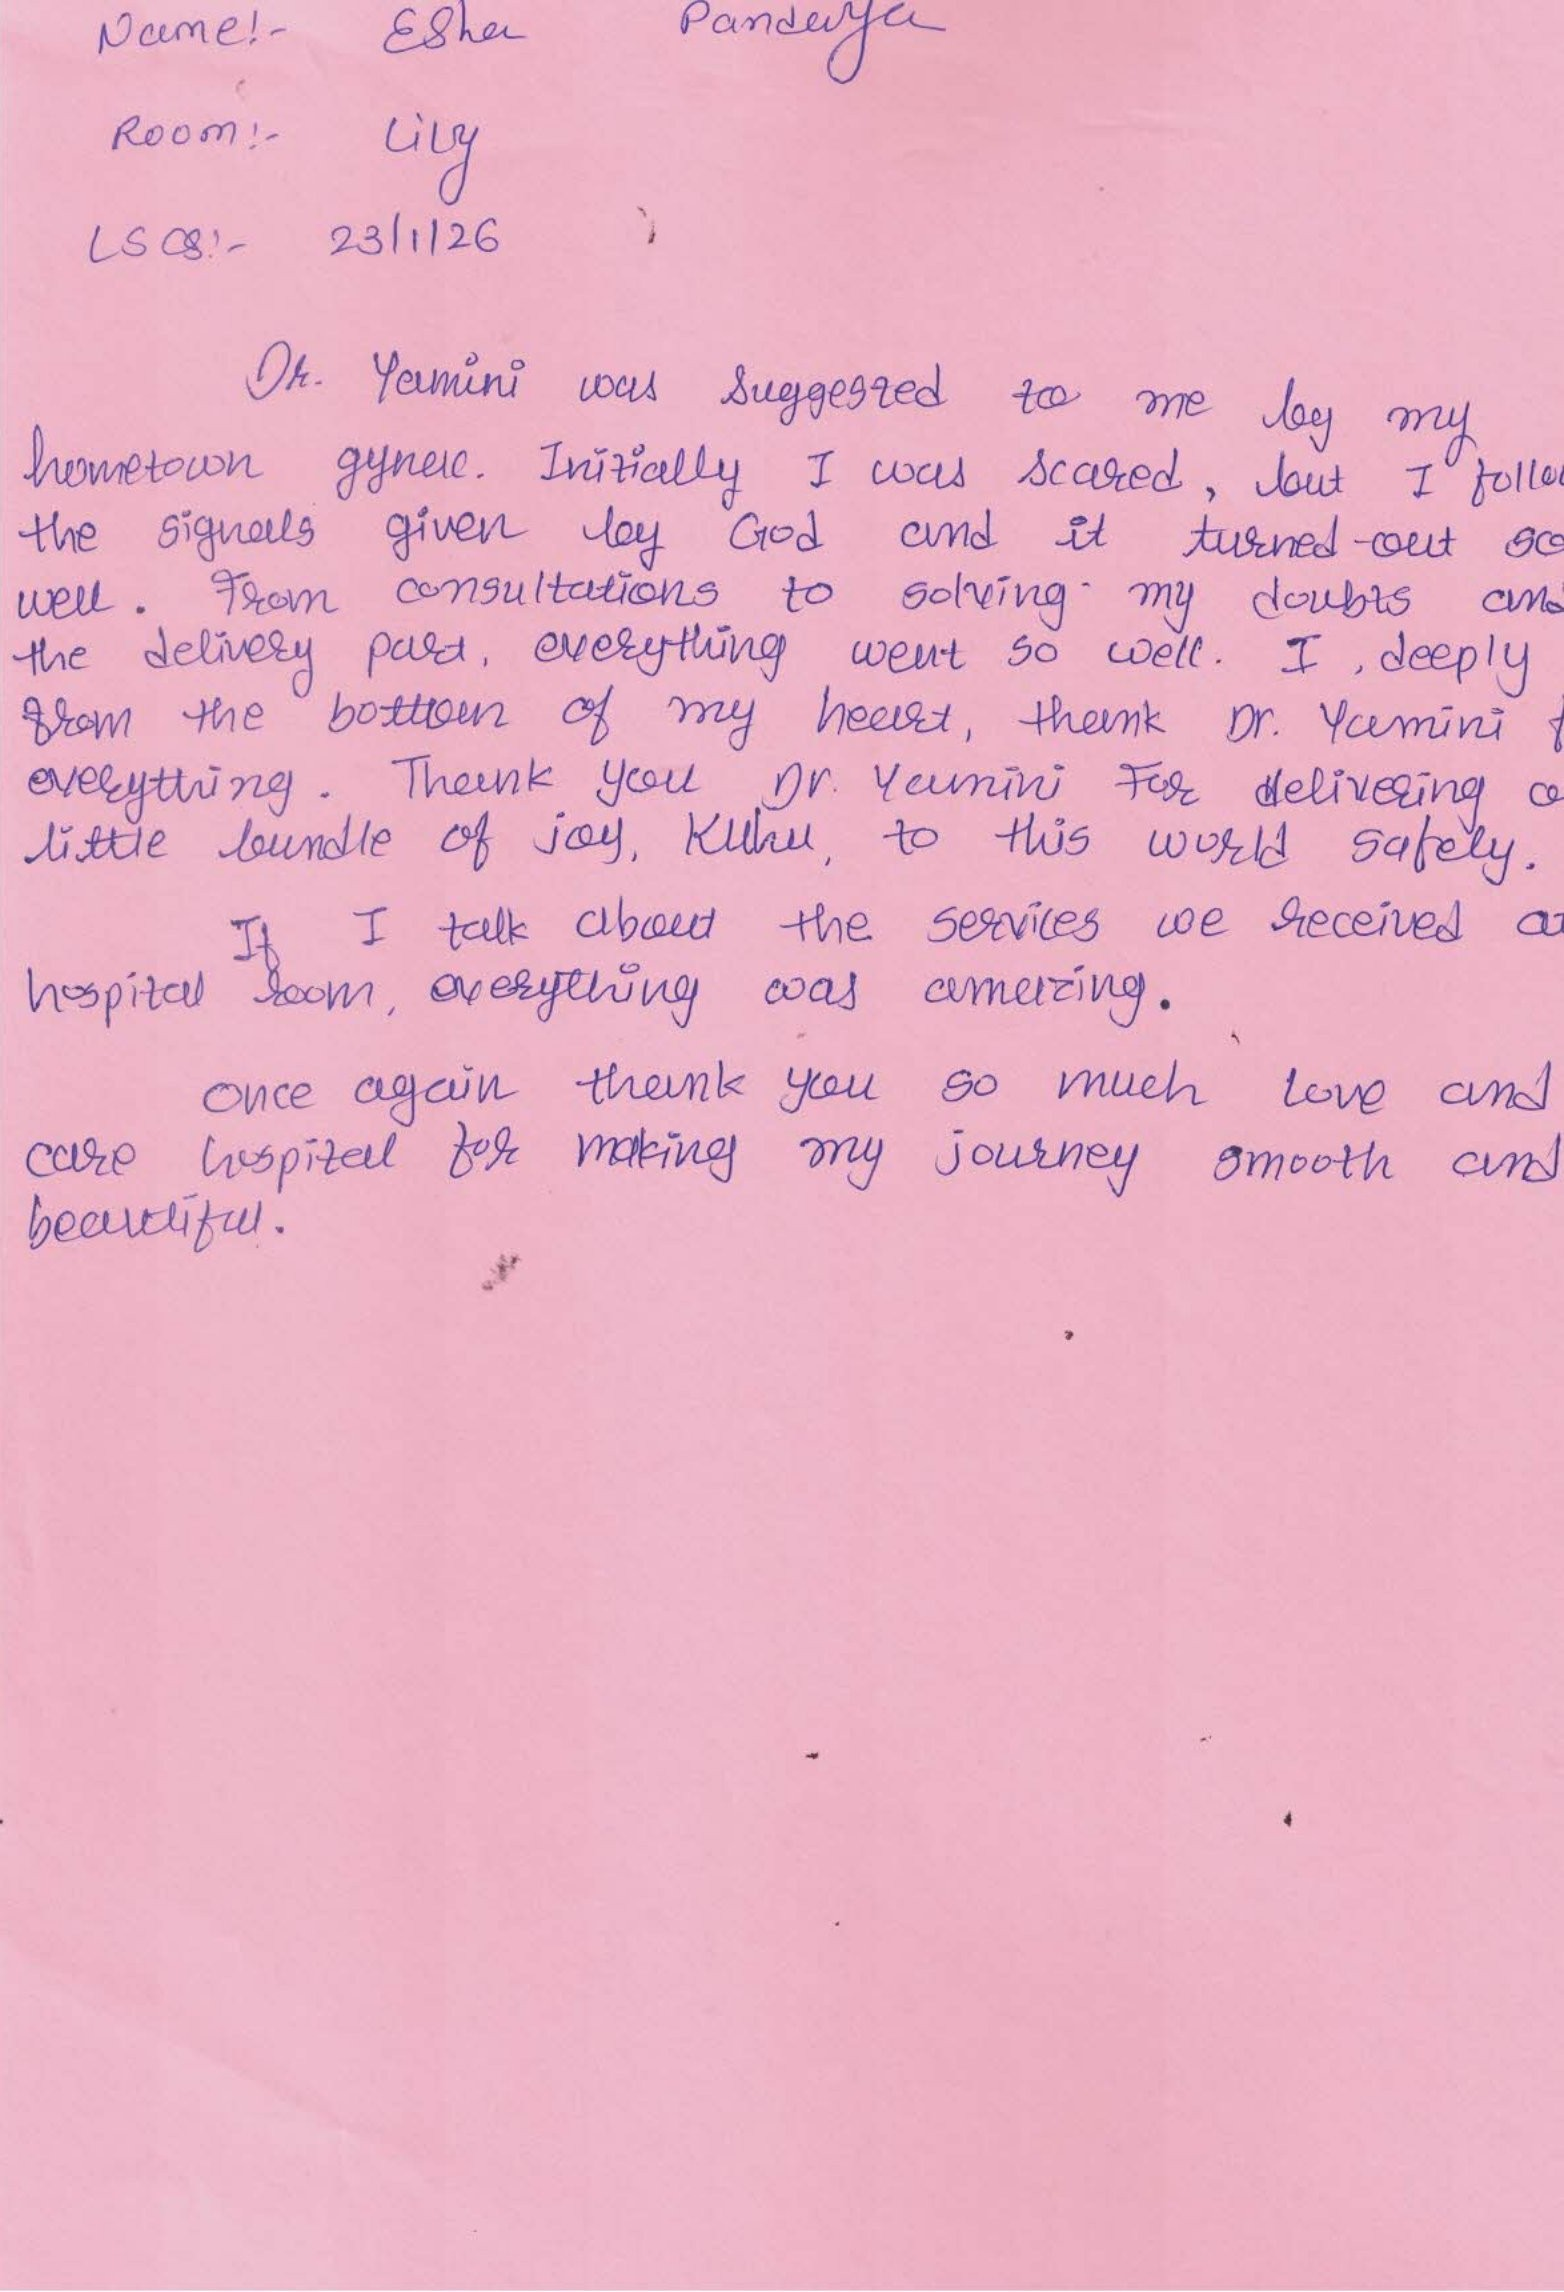 Name:- Esha Pandaya
Room:- Lily
LSCS:- 23/1/26
Dr. Yamini was suggested to me by my
hometown gynec. Initially I was scared, but I follow
the signals given by God and it turned-out so
well. From consultations to solving my doubts and
the delivery part, everything went so well. I, deeply
from the bottom of my heart, thank Dr. Yamini
everything. Thank you Dr. Yamini For delivering
little bundle of joy, Kuhu, to this world safely.
If I talk about the services we received
hospital room, everything was amazing.
Once again thank you so much love and
care hospital for making my journey smooth and
beautiful.